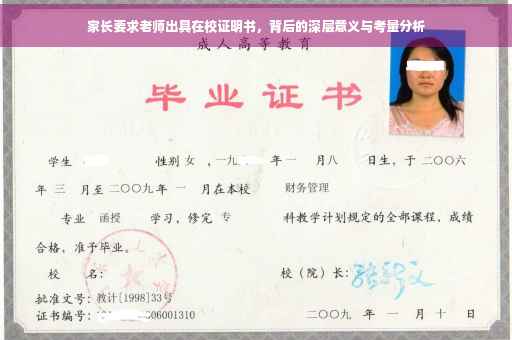 家长要求老师出具在校证明书，背后的深层意义与考量分析
成人高等教育
毕业证书
学生 性别 女 ，一九 年 一 月八 日生，于 二〇〇六
年 三 月至 二〇〇九 年 一 月在本校 财务管理
专业 函授 学习，修完 专 科教学计划规定的全部课程，成绩
合格，准予毕业。
校 名： 校（院）长：
批准文号：教计[1998]33号
证书编号： 06001310 二〇〇九 年 一 月 十 日